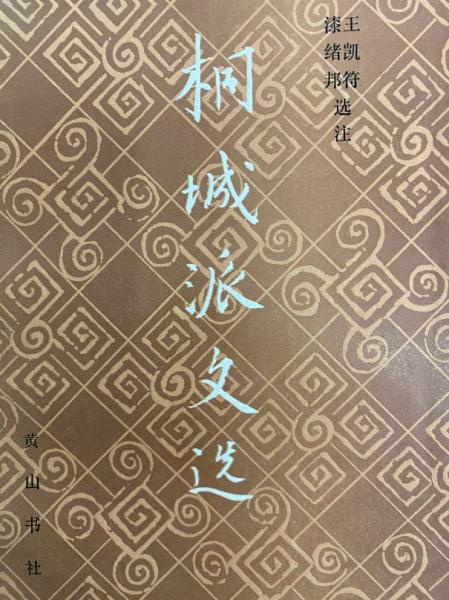 王凯符
漆绪邦 选注
桐城派文选
黄山书社